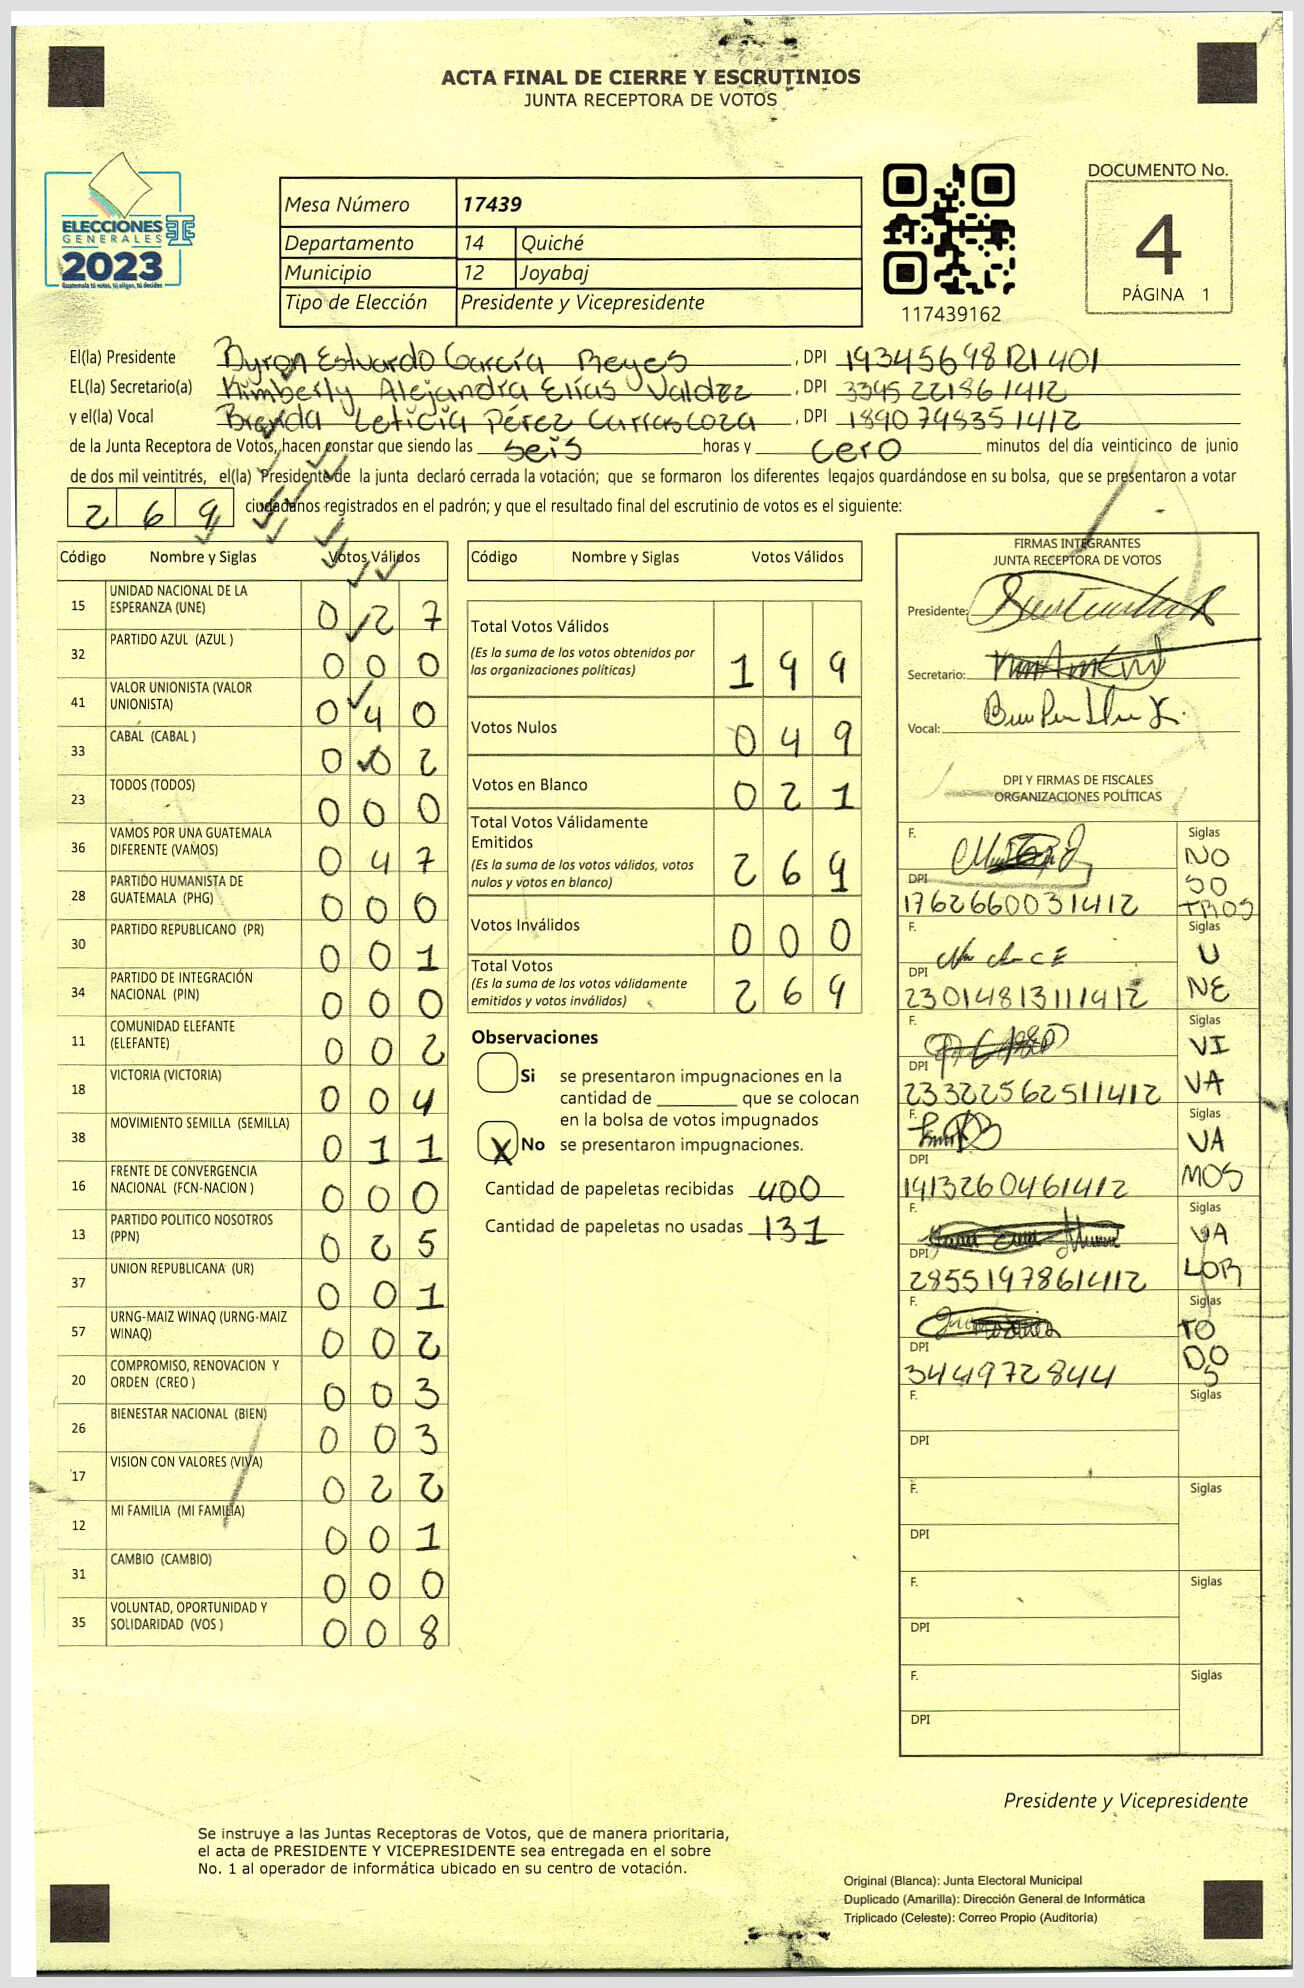 ACTA FINAL DE CIERRE Y ESCRUTINIOS
JUNTA RECEPTORA DE VOTOS
ELECCIONES
GENERALES
2023
Guatemala tú votas, tú eliges, tú decides
Mesa Número 17439
Departamento 14 Quiché
Municipio 12 Joyabaj
Tipo de Elección Presidente y Vicepresidente
117439162
DOCUMENTO No.
4
PÁGINA 1
El(la) Presidente Byron Estuardo García Reyes, DPI 1934569812 1401
EL(la) Secretario(a) Kimberly Alejandra Elías Valdez, DPI 3345221861412
y el(la) Vocal Brenda Leticia Pérez Carrascoza, DPI 1890798351412
de la Junta Receptora de Votos, hacen constar que siendo las seis horas y cero minutos del día veinticinco de junio
de dos mil veintitrés, el(la) Presidente de la junta declaró cerrada la votación; que se formaron los diferentes legajos guardándose en su bolsa, que se presentaron a votar
269 ciudadanos registrados en el padrón; y que el resultado final del escrutinio de votos es el siguiente:
Código Nombre y Siglas Votos Válidos
15 UNIDAD NACIONAL DE LA ESPERANZA (UNE) 0 2 7
32 PARTIDO AZUL (AZUL ) 0 0 0
41 VALOR UNIONISTA (VALOR UNIONISTA) 0 4 0
33 CABAL (CABAL ) 0 0 2
23 TODOS (TODOS) 0 0 0
36 VAMOS POR UNA GUATEMALA DIFERENTE (VAMOS) 0 4 7
28 PARTIDO HUMANISTA DE GUATEMALA (PHG) 0 0 0
30 PARTIDO REPUBLICANO (PR) 0 0 1
34 PARTIDO DE INTEGRACIÓN NACIONAL (PIN) 0 0 0
11 COMUNIDAD ELEFANTE (ELEFANTE) 0 0 2
18 VICTORIA (VICTORIA) 0 0 4
38 MOVIMIENTO SEMILLA (SEMILLA) 0 1 1
16 FRENTE DE CONVERGENCIA NACIONAL (FCN-NACION ) 0 0 0
13 PARTIDO POLITICO NOSOTROS (PPN) 0 2 5
37 UNION REPUBLICANA (UR) 0 0 1
57 URNG-MAIZ WINAQ (URNG-MAIZ WINAQ) 0 0 2
20 COMPROMISO, RENOVACION Y ORDEN (CREO ) 0 0 3
26 BIENESTAR NACIONAL (BIEN) 0 0 3
17 VISION CON VALORES (VIVA) 0 2 2
12 MI FAMILIA (MI FAMILIA) 0 0 1
31 CAMBIO (CAMBIO) 0 0 0
35 VOLUNTAD, OPORTUNIDAD Y SOLIDARIDAD (VOS ) 0 0 8
Código Nombre y Siglas Votos Válidos
Total Votos Válidos
(Es la suma de los votos obtenidos por las organizaciones políticas) 1 9 9
Votos Nulos 0 4 9
Votos en Blanco 0 2 1
Total Votos Válidamente Emitidos
(Es la suma de los votos válidos, votos nulos y votos en blanco) 2 6 9
Votos Inválidos 0 0 0
Total Votos
(Es la suma de los votos válidamente emitidos y votos inválidos) 2 6 9
Observaciones
Si se presentaron impugnaciones en la
cantidad de ________ que se colocan
en la bolsa de votos impugnados
X No se presentaron impugnaciones.
Cantidad de papeletas recibidas 400
Cantidad de papeletas no usadas 131
FIRMAS INTEGRANTES
JUNTA RECEPTORA DE VOTOS
Presidente:
Secretario:
Vocal:
DPI Y FIRMAS DE FISCALES
ORGANIZACIONES POLÍTICAS
F. Siglas NOSOTROS
DPI 1762660031412
F. Siglas UNE
DPI 2301481311 1412
F. Siglas VIVA
DPI 2332256251 1412
F. Siglas VAMOS
DPI 1413260461412
F. Siglas VALOR
DPI 2855197861412
F. Siglas TODOS
DPI 3449972844
F. Siglas
DPI
F. Siglas
DPI
F. Siglas
DPI
F. Siglas
DPI
Presidente y Vicepresidente
Se instruye a las Juntas Receptoras de Votos, que de manera prioritaria,
el acta de PRESIDENTE Y VICEPRESIDENTE sea entregada en el sobre
No. 1 al operador de informática ubicado en su centro de votación.
Original (Blanca): Junta Electoral Municipal
Duplicado (Amarilla): Dirección General de Informática
Triplicado (Celeste): Correo Propio (Auditoría)